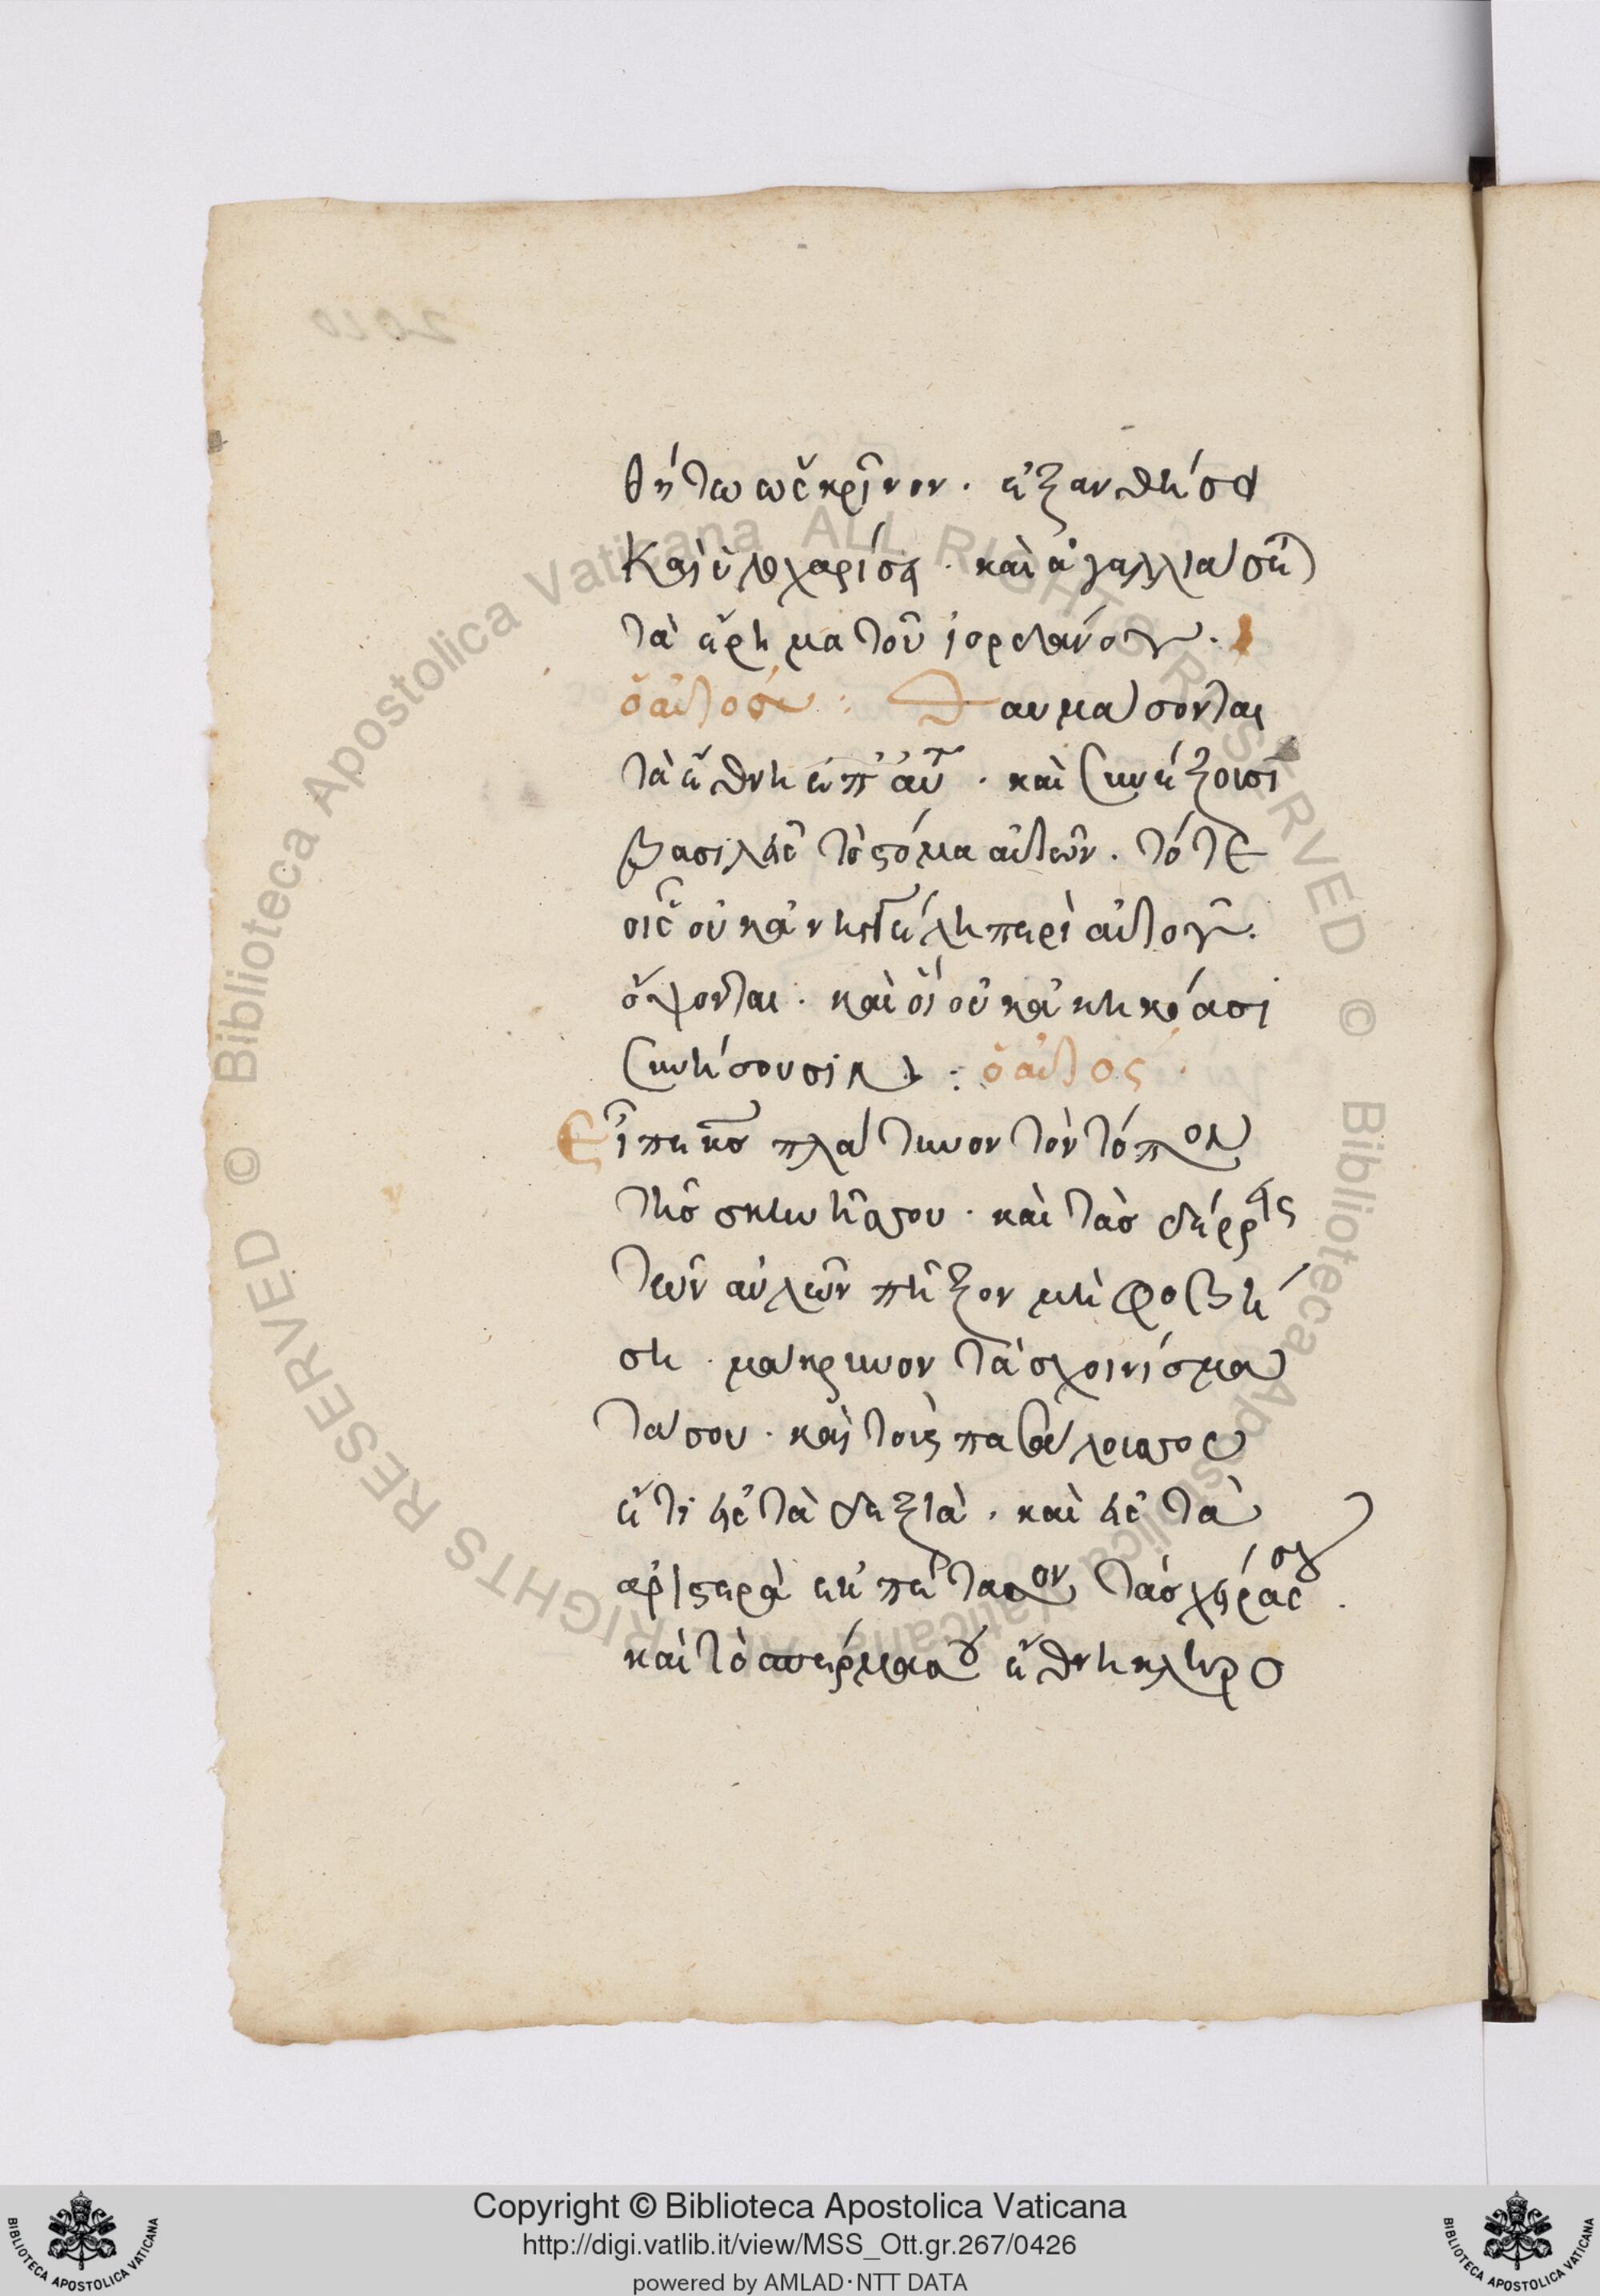 θήτω ὡς κρῖνον. ἐξανθήσα
καὶ ὑλοχαρίσει. καὶ ἀγαλλιάσετ
τὰ ἔρημα τοῦ ἰορδάνου.
ὁ αὐτός: Θαυμάσονται
τὰ ἔθνη ἐπ' αὐτ. καὶ συνέξουσι
βασιλεῖς τὸ στόμα αὐτῶν. τότε
οἷς οὐκ ἀνηγγέλη περὶ αὐτοῦ.
ὄψονται. καὶ οἳ οὐκ ἀκηκόασι
συνήσουσιν: ὁ αὐτός
Εἶπε κς πλάτυνον τὸν τόπον
τῆς σκηνῆς σου. καὶ τὰς δέρρεις
τῶν αὐλῶν πῆξον μὴ φοβή
ση. μάκρυνον τὰ σχοινίσμα
τά σου. καὶ τοὺς πασσάλους σου
ἔτι εἰς τὰ δεξιὰ. καὶ εἰς τὰ
ἀριστερὰ ἐκπέτασον τὰς χεῖράς σου.
καὶ τὸ σπέρμα σου ἔθνη κληρο
Copyright © Biblioteca Apostolica Vaticana
http://digi.vatlib.it/view/MSS_Ott.gr.267/0426
powered by AMLAD·NTT DATA
BIBLIOTECA APOSTOLICA VATICANA
BIBLIOTECA APOSTOLICA VATICANA
© Biblioteca Apostolica Vaticana ALL RIGHTS RESERVED © Biblioteca Apostolica Vaticana ALL RIGHTS RESERVED